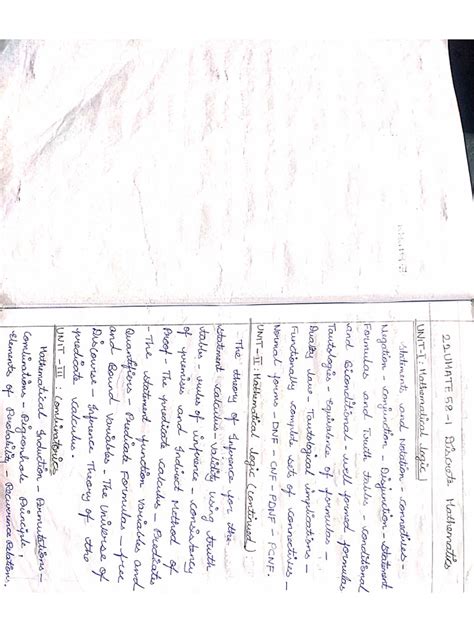 22UMATE 58-1 Discrete Mathematics
UNIT-I: Mathematical Logic
Statements and Notation - connectives -
Negation - Conjunction - Disjunction - Statement
Formulas and Truth tables - conditional
and Biconditional - well formed formulas
Tautologies - Equivalence of formulas -
Duality law - Tautological implications -
Functionally complete sets of connectives -
Normal forms - DNF - CNF - PDNF - PCNF.
UNIT-II: Mathematical logic (continued)
The theory of Inference for the
statement calculus - validity using truth
table - rules of inference - consistency
of premises and Indirect Method of
Proof - The predicate calculus - Predicates
- The statement function variables and
Quantifiers - Predicate Formulas - free
and Bound Variables - The Universe of
Discourse - Inference Theory of the
predicate calculus.
UNIT-III: Combinatorics
Mathematical Induction - Permutations -
Combinations - Pigeonhole Principle -
Elements of Probability - Recurrence Relation.